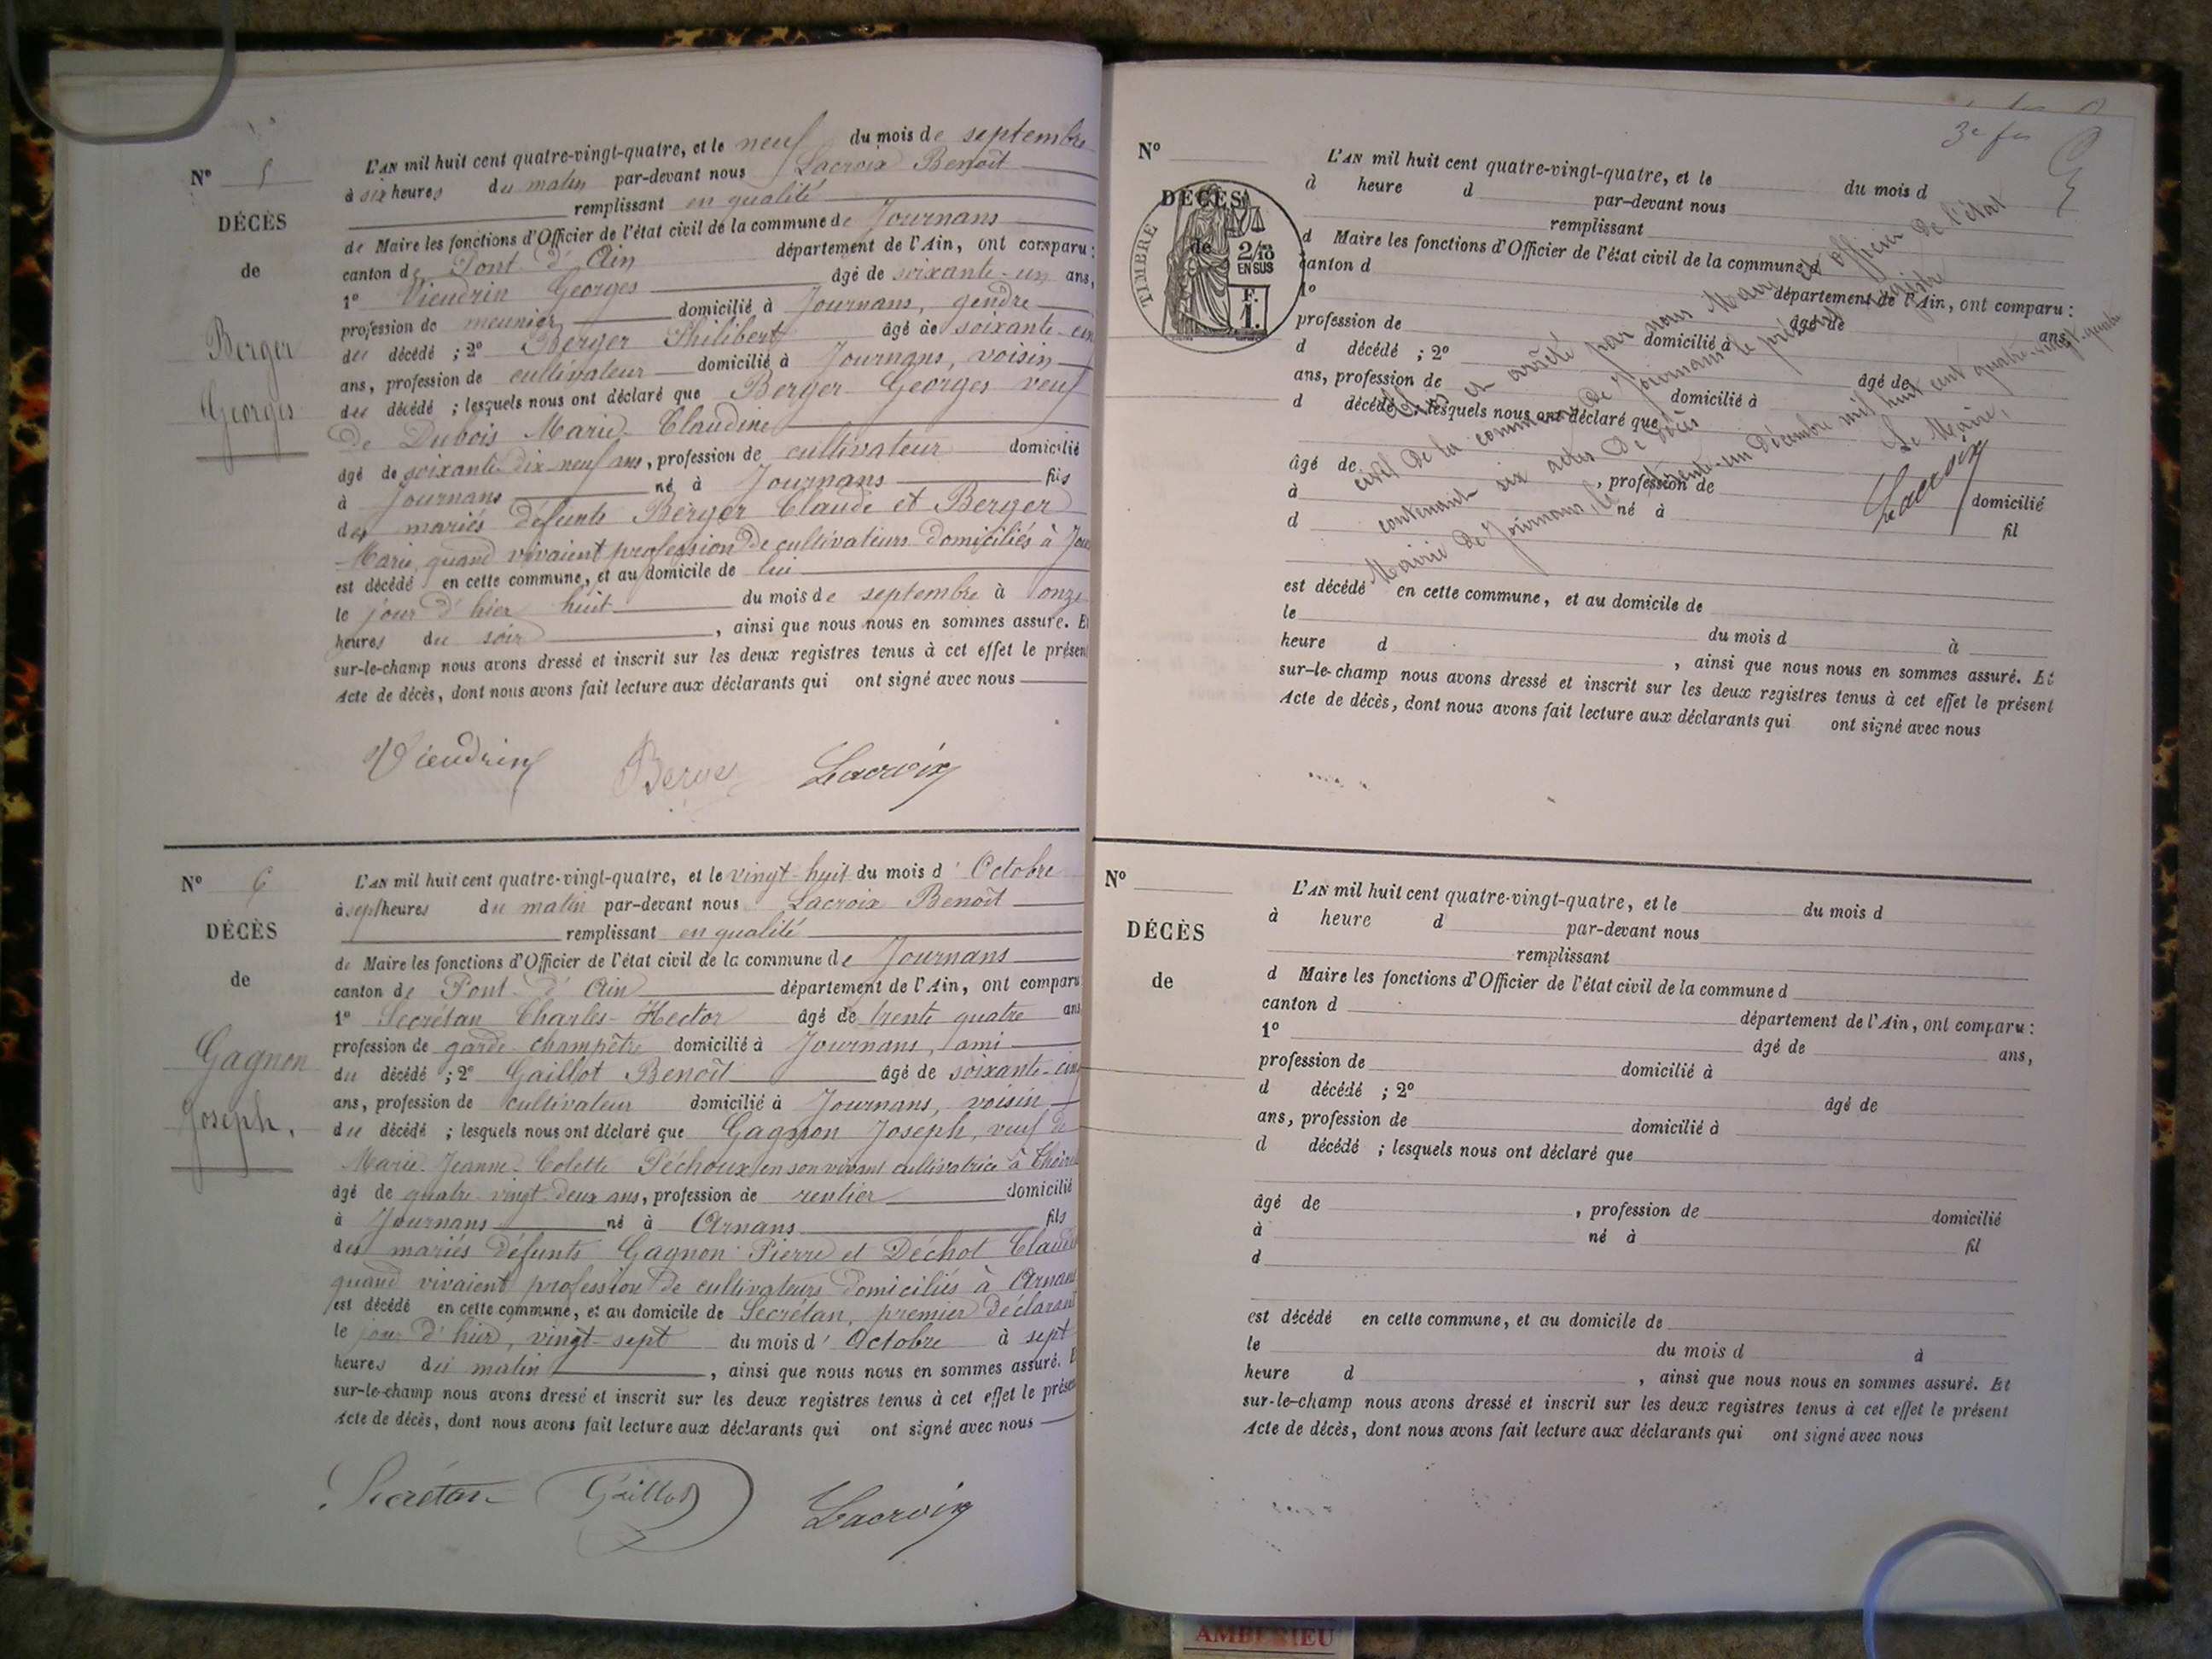 Nº 5
DÉCÈS
de
Berger
Georges
L'AN mil huit cent quatre-vingt-quatre, et le neuf du mois de septembre
à six heures du matin par-devant nous Lacroix Benoît
remplissant en qualité
de Maire les fonctions d'Officier de l'état civil de la commune de Journans
canton de Pont d'Ain département de l'Ain, ont comparu :
1º Vieudrin Georges âgé de soixante-un ans,
profession de meunier domicilié à Journans, gendre
du décédé ; 2º Berger Philibert âgé de soixante-cinq
ans, profession de cultivateur domicilié à Journans, voisin
du décédé ; lesquels nous ont déclaré que Berger Georges veuf
de Dubois Marie-Claudine
âgé de soixante-dix-neuf ans, profession de cultivateur domicilié
à Journans né à Journans fils
des mariés défunts Berger Claude et Berger
Marie, quand vivaient profession de cultivateurs domiciliés à Jour
est décédé en cette commune, et au domicile de lui
le jour d'hier huit du mois de septembre à onze
heures du soir, ainsi que nous nous en sommes assuré. Et
sur-le-champ nous avons dressé et inscrit sur les deux registres tenus à cet effet le présent
Acte de décès, dont nous avons fait lecture aux déclarants qui ont signé avec nous
Vieudrin Berger Lacroix
Nº 6
DÉCÈS
de
Gagnon
Joseph.
L'AN mil huit cent quatre-vingt-quatre, et le vingt-huit du mois d'Octobre
à sept heures du matin par-devant nous Lacroix Benoît
remplissant en qualité
de Maire les fonctions d'Officier de l'état civil de la commune de Journans
canton de Pont-d'Ain département de l'Ain, ont comparu
1º Secrétan Charles-Hector âgé de trente quatre ans
profession de garde-champêtre domicilié à Journans, ami
du décédé ; 2º Gaillot Benoît âgé de soixante-cinq
ans, profession de cultivateur domicilié à Journans, voisin
du décédé ; lesquels nous ont déclaré que Gagnon Joseph, veuf de
Marie-Jeanne-Colette Péchoux en son vivant cultivatrice à
âgé de quatre vingt deux ans, profession de rentier domicilié
à Journans né à Arnans fils
des mariés défunts Gagnon Pierre et Déchot
quand vivaient profession de cultivateurs domiciliés à Arnans
est décédé en cette commune, et au domicile de Secrétan, premier déclarant
le jour d'hier, vingt-sept du mois d'Octobre à sept
heures du matin, ainsi que nous nous en sommes assuré. E
sur-le-champ nous avons dressé et inscrit sur les deux registres tenus à cet effet le présen
Acte de décès, dont nous avons fait lecture aux déclarants qui ont signé avec nous
Secrétan Gaillot Lacroix
Nº
DÉCÈS
de
TIMBRE
2/10
EN SUS
F.
1.
L'AN mil huit cent quatre-vingt-quatre, et le du mois d
à heure d par-devant nous
remplissant
d Maire les fonctions d'Officier de l'état civil de la commune d
canton d département de l'Ain, ont comparu :
1º âgé de ans,
profession de domicilié à
d décédé ; 2º âgé de
ans, profession de domicilié à
d décédé ; lesquels nous ont déclaré que
âgé de , profession de domicilié
à né à fil
d
est décédé en cette commune, et au domicile de
le du mois d à
heure d , ainsi que nous nous en sommes assuré. Et
sur-le-champ nous avons dressé et inscrit sur les deux registres tenus à cet effet le présent
Acte de décès, dont nous avons fait lecture aux déclarants qui ont signé avec nous
Clos et arrêté par nous Maire et officier de l'état
civil de la commune de Journans le présent registre
contenant six actes de décès
Mairie de Journans, le trente-un décembre mil huit cent quatre-vingt-quatre
Le Maire,
Lacroix
Nº
DÉCÈS
de
L'AN mil huit cent quatre-vingt-quatre, et le du mois d
à heure d par-devant nous
remplissant
d Maire les fonctions d'Officier de l'état civil de la commune d
canton d département de l'Ain, ont comparu :
1º âgé de ans,
profession de domicilié à
d décédé ; 2º âgé de
ans, profession de domicilié à
d décédé ; lesquels nous ont déclaré que
âgé de , profession de domicilié
à né à fil
d
est décédé en cette commune, et au domicile de
le du mois d à
heure d , ainsi que nous nous en sommes assuré. Et
sur-le-champ nous avons dressé et inscrit sur les deux registres tenus à cet effet le présent
Acte de décès, dont nous avons fait lecture aux déclarants qui ont signé avec nous
AMBERIEU